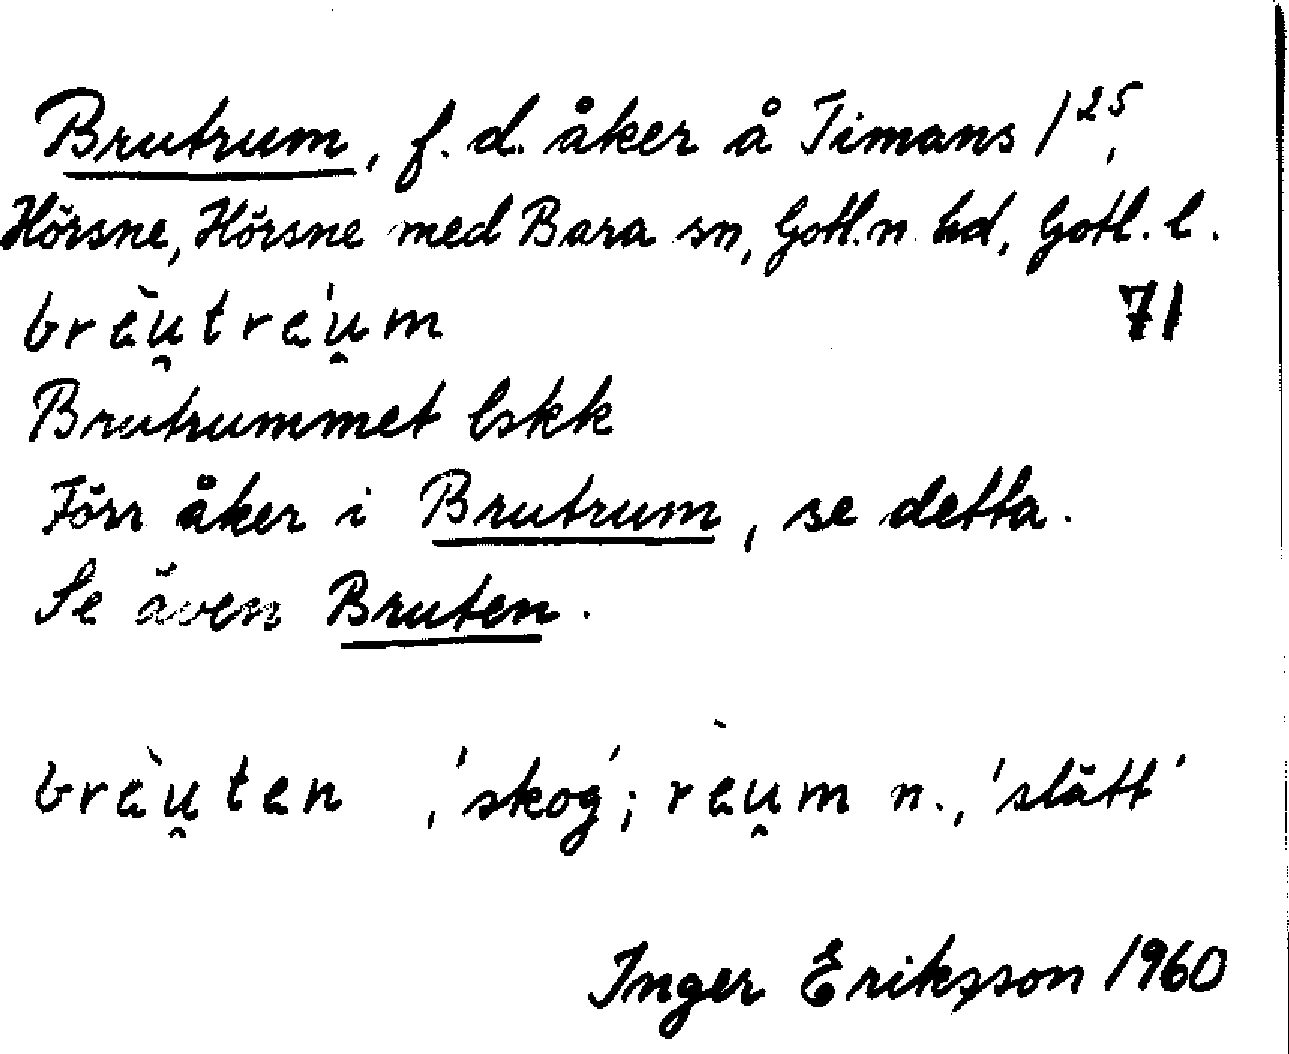 Brutrum, f. d. åker å Timans 1²⁵,
Hörsne, Hörsne med Bara sn, Gotl. n. hd, Gotl. l.
brèu̯treu̯m 71
Brutrummet lskk
Förr åker i Brutrum, se detta.
Se även Bruten.
brèu̯ten , 'skog'; rèu̯m n., 'slätt'
Inger Eriksson 1960